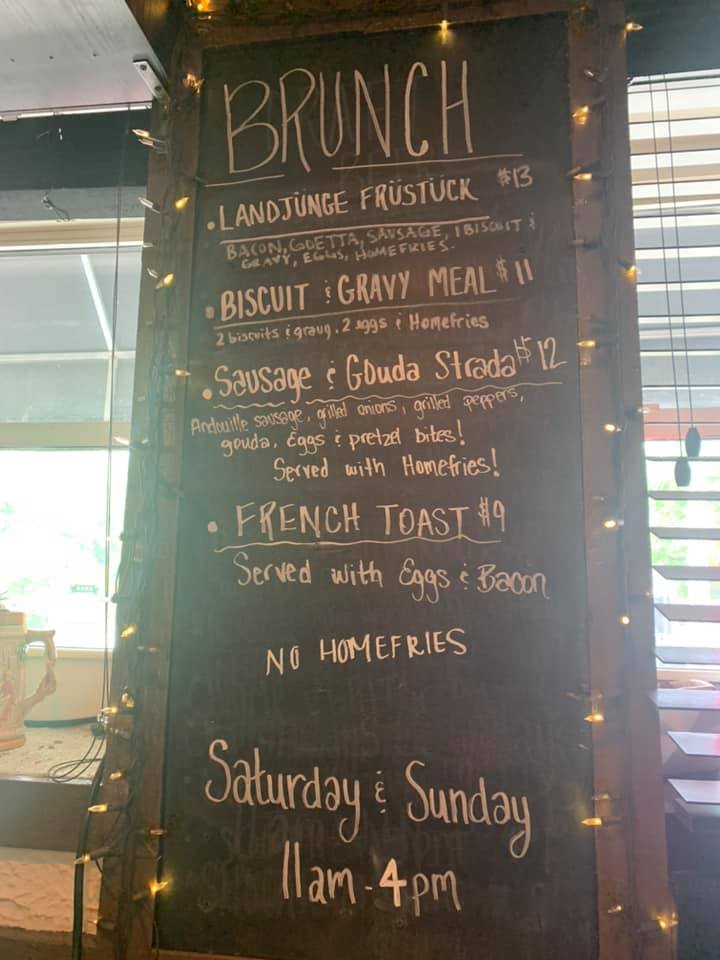 BRUNCH
• LANDJÜNGE FRÜSTÜCK $13
BACON, GOETTA, SAUSAGE, 1 BISCUIT &
GRAVY, EGGS, HOMEFRIES.
• BISCUIT & GRAVY MEAL $11
2 biscuits & gravy, 2 eggs & Homefries
• Sausage & Gouda Strada $12
Andouille sausage, grilled onions, grilled peppers,
gouda, Eggs & pretzel bites!
Served with Homefries!
• FRENCH TOAST $9
Served with Eggs & Bacon
NO HOMEFRIES
Saturday & Sunday
11am-4pm